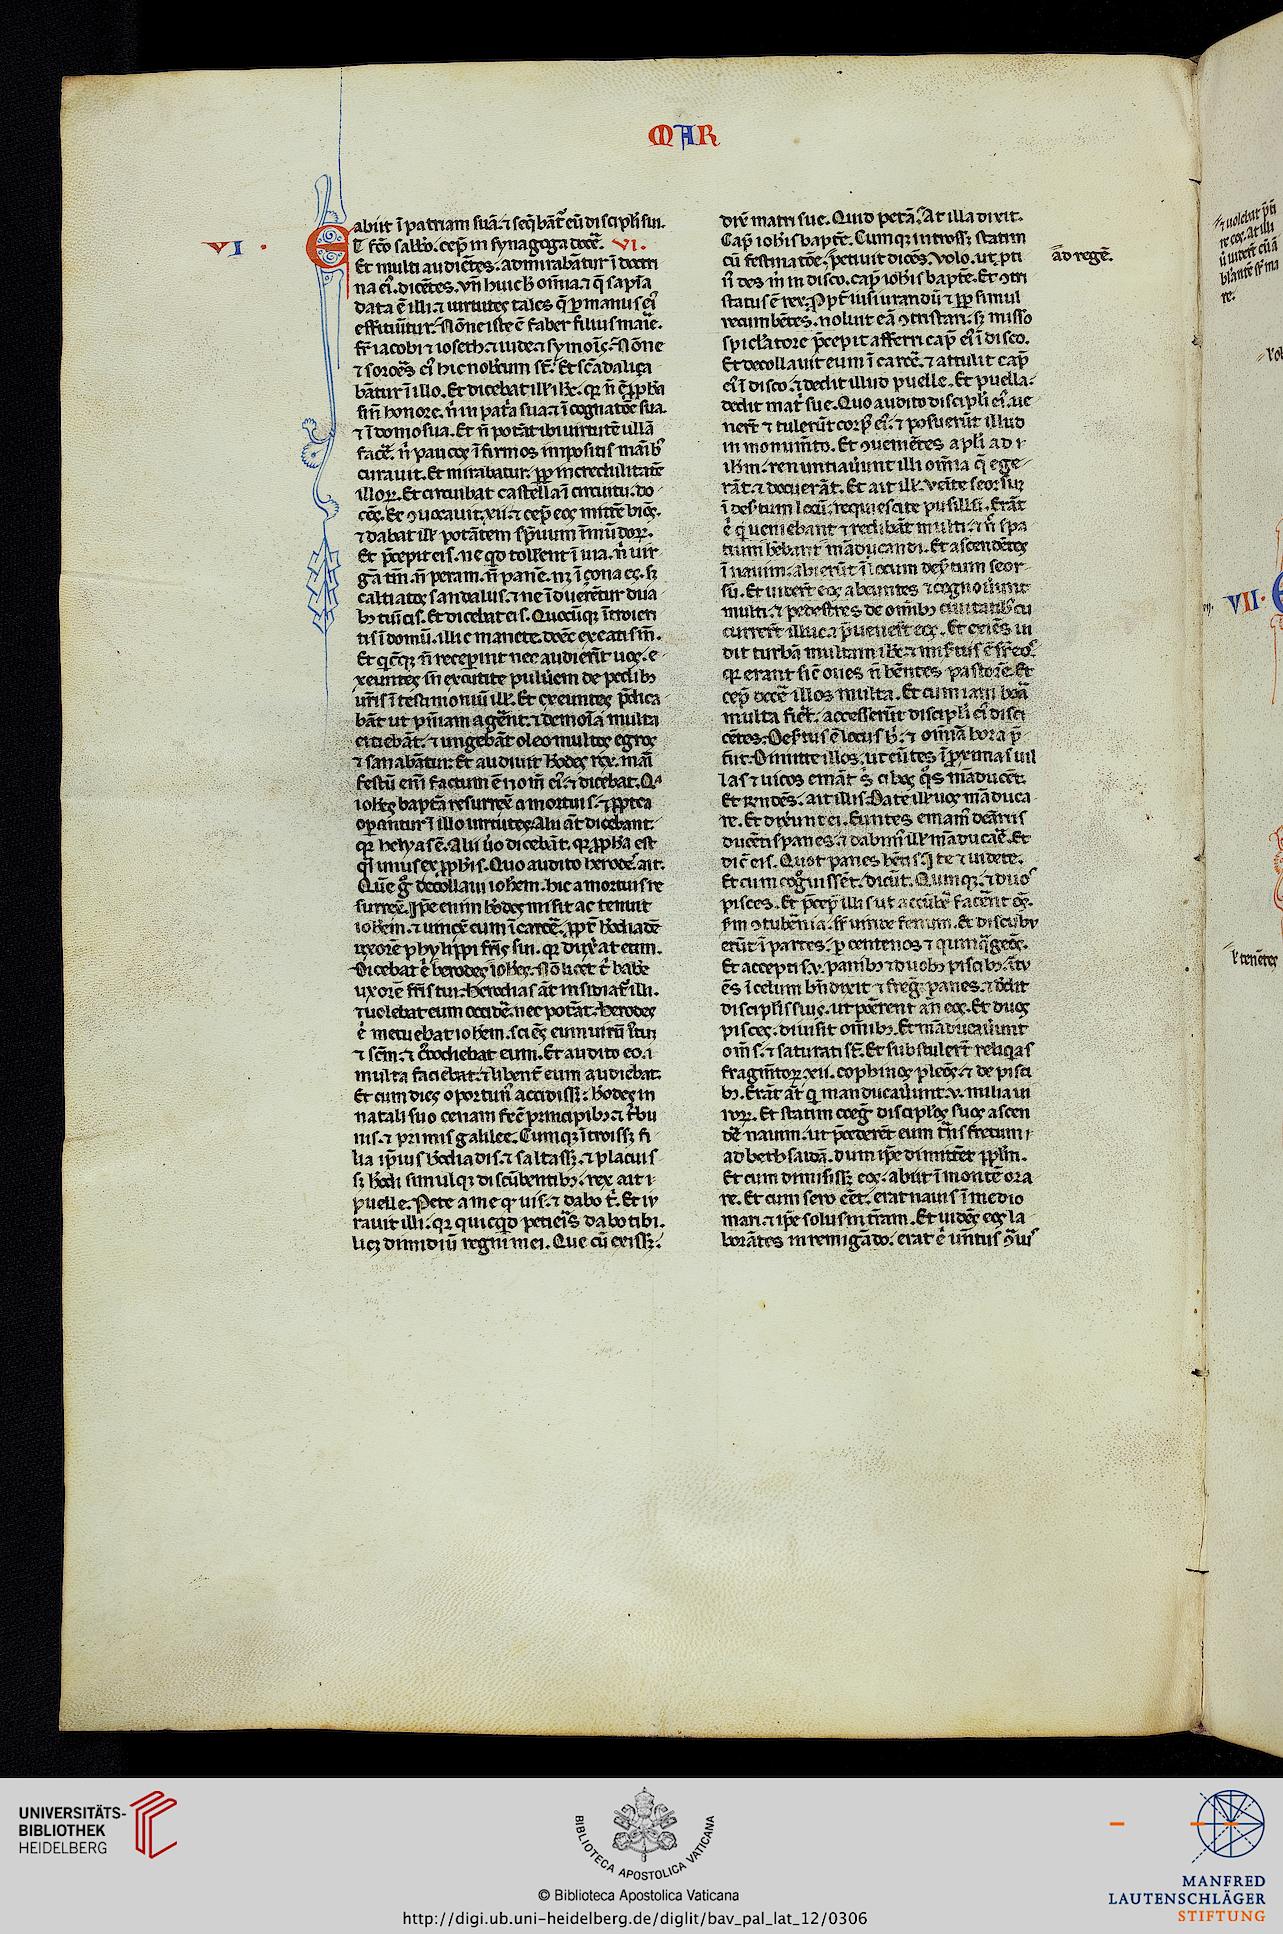 MAR
abiit ī patriam suā. ⁊ seq̄bāt̃ eū discipl̃i sui.
VI.
ET fc̃o sabb̃o. cep̃ in synagoga docẽ. VI.
Et multi audiẽtes. admirabãtur ĩ doctri
na eĩ. dicẽtes. vñ huic h̃ oĩnia. ⁊ q̃ sapĩa
data ẽ illi. ⁊ uirtutes tales q̃ p manus eĩ
efficiũtur. Nõne iste ẽ faber filius marie.
fr̃ iacobi ⁊ ioseth. ⁊ iude ⁊ symoĩs. Nõne
⁊ sorores eĩ hic nob̃cum st̃. Et scãdaliça
bãtur ĩ illo. Et dicebat ill' ih̃c. qr ñ ẽ ꝓph̃a
sĩn honore. ñ in pat̃a sua. ⁊ ĩ cognatõe sua.
⁊ ĩ domo sua. Et ñ potãt ibi uirtutẽ ullã
facẽ. ñ paucos ĩfirmos impositis maĩb'
curauit. Et mirabatur. ꝓp̃ incredulitatẽ
illoꝝ. Et circuibat castella ĩ circuitu. do
cẽs. Et ꝯuocauit. xii. ⁊ cep̃ eos mittẽ bĩos.
⁊ dabat ill' potãtem sp̃uum ĩmũdoꝝ.
Et p̃cepit eis. ne qd tollent ĩ uia. ñ uir
gã tm̃. ñ peram. ñ panẽ. nꝫ ĩ çona es. sꝫ
caltiatos sandalus. ⁊ ne ĩduerẽtur dua
bꝫ tunĩcis. Et dicebat eis. Quocũqꝫ ĩtroieri
tis ĩ domũ. illic manete. donẽc exeatis ĩn.
Et qĩcũqꝫ ñ recep̃int nec audierĩt uos. e-
xeuntes ĩn excutite puluẽem de pedibꝫ
ur̃is ĩ testimoniũ ill'. Et exeuntes p̃dica
bãt ut pñiam agẽent. ⁊ demoĩa multa
eiciebãt. ⁊ ungebãt oleo multos egros
⁊ sanabãtur. Et audiuit h̃odes rex. mãi
festũ eĩm factum ẽ nom̃ eĩ. ⁊ dicebat. Qa
ioh̃es bapt̃a resurrex̃ a mortuis. ⁊ ꝓpt̃ea
op̃antur ĩ illo uirtutes. Alii aũt dicebant.
qr helyas ẽ. Alii ũo dicebãt. qr ꝓph̃a est
q̃i unus ex ꝓph̃is. Quo audito herodes ait.
Quẽ g̃ decollaui ioh̃em. hic a mortuis re
surrex̃. Ip̃e enim h̃odes misit ac tenuit
ioh̃em. ⁊ uinx̃ eum ĩ carcẽ. ꝓpt̃ h̃odiadẽ
uxorẽ phylippi fr̃is sui. qr dux̃at eam.
Dicebat ẽ herodes ioh̃es. Nõ licet t̃ habẽ
uxorẽ fr̃is tui. Herodias aũt insidiat̃ illi.
⁊ uolebat eum occidẽ. nec potãt. Herodes
ẽ metuebat ioh̃em. sciẽs eum uirũ iustũ
⁊ sc̃m. ⁊ custodiebat eum. Et audito eo. i
multa faciebat. ⁊ libent̃ eum audiebat.
Et cum dies oportun' accidissꝫ. h̃odes in
natali suo cenam fec̃ principibꝫ. ⁊ t̃bu
nis. ⁊ primis galilee. Cumqꝫ ĩtroissꝫ fi
lia ip̃ius h̃odiadis. ⁊ saltassꝫ. ⁊ placuis
sꝫ h̃odi simulqꝫ discũbentibꝫ. rex ait i
puelle. Pete a me qd uis. ⁊ dabo t̃. Et iu
rauit illi. qr quicqd petieris dabo tibi.
licꝫ dimidiũ regni mei. Que cũ exissꝫ.
dix̃ matri sue. Quid petã. At illa dixit.
Cap̃ ioh̃is bapt̃e. Cumqꝫ introissꝫ statim
cũ festinatõe. petiuit dicẽs. Volo. ut pti
ad regẽ.
ñ des m̃ in disco. cap̃ ioh̃is bapt̃e. Et ꝯtri
status ẽ rex. Ppt̃ iusiurandũ ⁊ ꝓp̃ simul
recumbẽtes. noluit eã ꝯtristari. sꝫ misso
spicl̃atore p̃cepit afferri cap̃ eĩ ĩ disco.
Et decollauit eum ĩ carcẽ. ⁊ attulit cap̃
eĩ ĩ disco. ⁊ dedit illud puelle. Et puella.
dedit mat̃ sue. Quo audito discipl̃i eĩ. ue
nerĩt ⁊ tulerũt corp' eĩ. ⁊ posuerũt illud
in monum̃to. Et ꝯuenĩetes apl̃i ad i
ih̃m. renuntiauũunt illi om̃ia q̃ ege
rãt. ⁊ docuerãt. Et ait ill'. Venite seorsuꝫ
ĩ des̃tum locũ. requiescite pusillũ. Erãt
ẽ q̃ ueniebant ⁊ redibãt multi. ⁊ ñ spa
tium h̃ebant mãducandi. Et ascendẽtes
ĩ nauim. abierũt ĩ locum des̃tum seor
sũ. Et uiderĩt eos abeuntes ⁊ cognouũunt
multi. ⁊ pedestres de om̃ibꝫ ciuitatibꝫ cũ
currerĩt illuc. ⁊ p̃uenerĩt eos. Et exiẽs ui
dit turbã multam ih̃c. ⁊ mis̃tus ẽ sr̃ eos.
qr erant sic̃ oues ñ h̃entes pastorẽ. Et
cep̃ docẽ illos multa. Et cum iam hora
multa fiẽt. accesserũt discipl̃i eĩ dicẽ
cẽtes. Des̃tus ẽ locus h̃. ⁊ om̃ia hora p̃
fuit. Dimitte illos. ut eũtes ĩ ꝓximas uil
las ⁊ uicos emãt s̃ cibos q̃s mãducẽt.
Et rñdẽs. ait illis. Date ill' uos mãduca
re. Et dix̃unt ei. Euntes emam' denãriis
ducẽtis panes. ⁊ dabim' ill' mãducarẽ. Et
dic̃ eis. Quot panes h̃etis. Ite ⁊ uidete.
Et cum cognouissẽt. dicũt. Quinqꝫ. ⁊ duos
pisces. Et p̃cep̃ illis ut accũbẽ facẽnt oẽs.
s̃m ꝯtub̃nia. sr̃ uiride fenum. Et discubu
erũt ĩ partes. p centenos ⁊ quinq̃genos.
Et acceptis. v. panibꝫ ⁊ duobꝫ piscibꝫ. ĩtu
ẽs ĩ celum bñdixit ⁊ fregĩt panes. ⁊ dedit
discipl̃is suis. ut ponẽrent añ eos. Et duos
pisces. diuisit om̃ibꝫ. Et mãducauũunt
om̃s. ⁊ saturati st̃. Et substulerĩt reliq̃as
fragm̃toꝝ. xii. cophinos plenos. ⁊ de pisci
bꝫ. Erãt aũt q̃ manducauũunt. v. milia ui
roꝝ. Et statim coeg̃ discipl̃os suos ascen
dẽ nauim. ut p̃cederẽt eum t̃ns fretum.
ad bethsaidã. dum ip̃e dimittẽt ppl̃m.
Et cum dimisissꝫ eos. abiit ĩ montẽ ora
re. Et cum sero eẽt. erat nauis ĩ medio
mari. ⁊ ip̃e solus in t̃ram. Et uidẽs eos la
borãtes in remigãdo. erat ẽ uẽntus ꝯ̃ius
VII.
UNIVERSITÄTS-
BIBLIOTHEK
HEIDELBERG
BIBLIOTECA APOSTOLICA VATICANA
© Biblioteca Apostolica Vaticana
http://digi.ub.uni-heidelberg.de/diglit/bav_pal_lat_12/0306
MANFRED
LAUTENSCHLÄGER
STIFTUNG